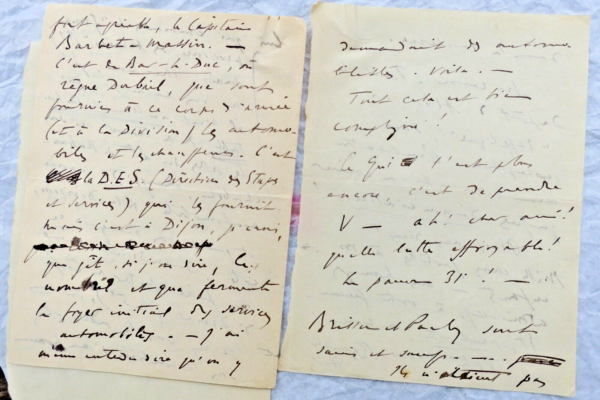 fort agréable, le Capitaine
Barbet-Massin. —
C'est de Bar-le-Duc, où
règne Dubail, que sont
fournies à ce corps d'armée
(et à la Division) les automo-
biles et les chauffeurs. C'est
la D.E.S. (Direction des Etapes
et Services) qui les fournit
mais c'est à Dijon, je crois,
que gît, si j'ose dire, le
nombril et que fermente
le foyer initial des services
automobiles. — J'ai
même entendu dire qu'on y
demandait des automo-
bilistes. Voilà. —
Tout cela est bien
compliqué!
Ce qui l'est plus
encore, c'est de prendre
V — ah! cher ami!
quelle lutte effroyable!
Le pauvre 31e! —
Brisson et Pauly sont
sains et saufs —
Ils n'étaient pas